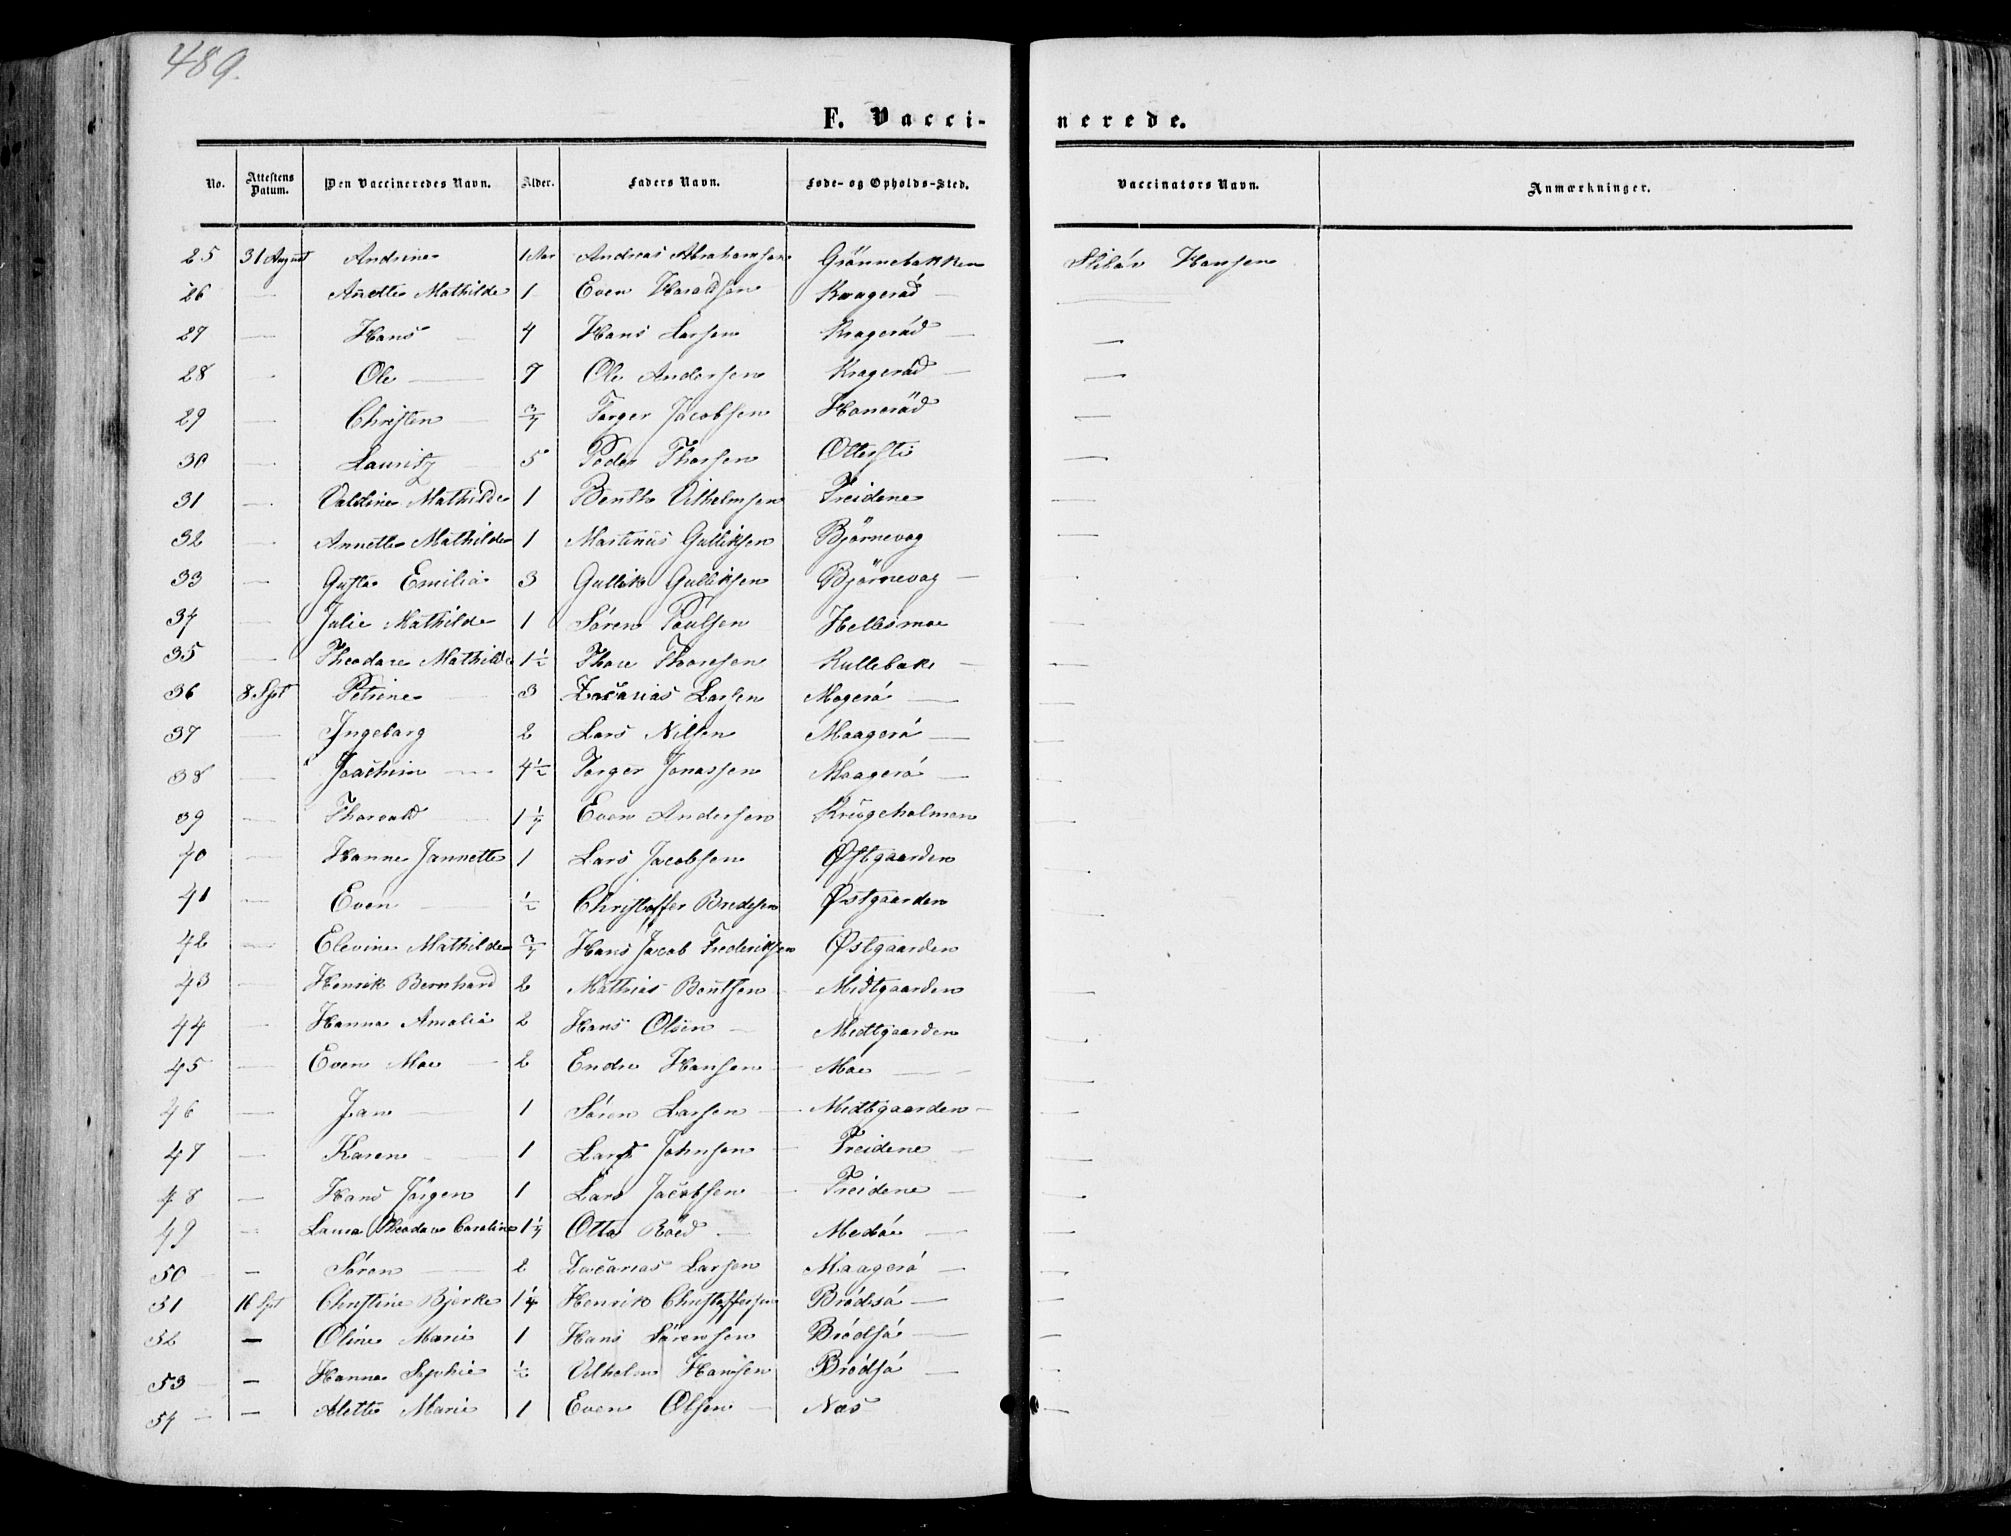 489.
F. Vaccinerede.
No. Attestens Datum. Den Vaccineredes Navn. Alder. Faders Navn. Føde- og Opholds-Sted. Vaccinators Navn. Anmærkninger.
25 31 August Andrine 1 Aar Andreas Abrahamsen Grönnebakken Hansen
26 — Anette Mathilde 1 Even Haraldsen Krageröd — —
27 — Hans 4 Hans Larsen Krageröd — —
28 — Ole — 7 Ole Andersen Krageröd — —
29 — Christen — 3/4 Torger Jacobsen Haneröd —
30 — Lauritz 5 Peder Thorsen Ottersti —
31 — Valdine Mathilde 1 Benth Vilhelmsen Treidene —
32 — Annette Mathilde 1 Martinus Gulliksen Björnevag —
33 — Gusta Emilia 3 Gullik Gulliksen Björnevag —
34 — Julie Mathilde 1 Sören Poulsen Hellesmoe —
35 — Theodore Mathilde 1½ Thore Thoresen Rullebak — —
36 8 Spt Petrine — 3 Zacarias Larsen Magerö — —
37 — Ingeborg 2 Lars Nilsen Maagerö — —
38 — Joachim — 4½ Torger Jonassen Maagerö — —
39 — Thorvald — 1¼ Even Andersen Krøgeholmen —
40 — Hanne Jannette 1 Lars Jacobsen Østgaarden —
41 — Even — ½ Christoffer Bredesen Østgaarden —
42 — Elevine Mathilde 3/4 Hans Jacob Frederiksen Østgaarden —
43 — Henrik Bernhard 2 Mathias Bentsen — Midtgaarden —
44 — Hanna Amalia 2 Hans Olsen — Midtgaarden —
45 — Even Moe — 2 Endre Hansen — Moe — —
46 — Jan — 1 Sören Larsen — Midtgaarden — —
47 — Karen — 1 Lars Johnsen — Treidene — —
48 — Hans Jörgen 1 Lars Jacobsen — Treidene — —
49 — Laura Theodore Caroline 1¼ Otto Röed — Medöe — —
50 — — Sören — 2 Zacarias Larsen Maagerö — —
51 16 Spt Christine Bjerke 1¼ Henrik Christoffersen Brödsö — —
52 — Oline Marie 1 Hans Sörensen Brödsö — —
53 — — Hanna Sophie ½ Vilhelm Hansen Brödsö —
54 — — Alette Marie 1 Even Olsen — Næs —